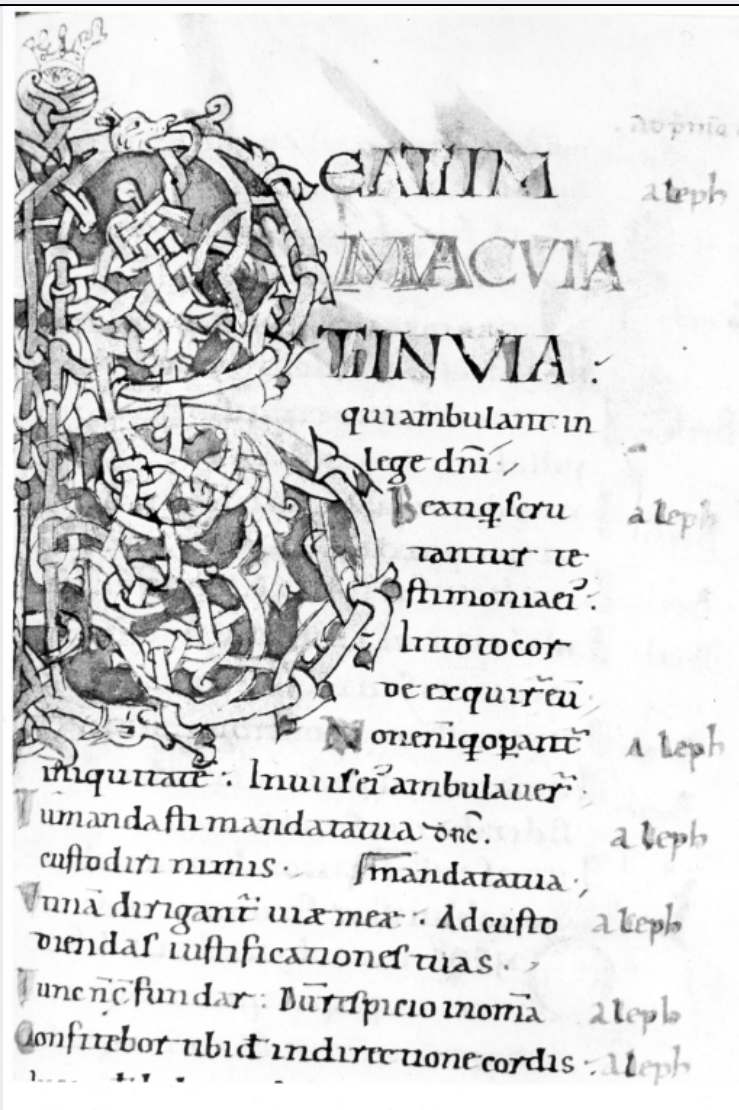 BEATI IM aleph
MACULA
TI IN VIA.
qui ambulant in
lege dn̄i
Beati q scru aleph
tantur te
stimonia ei᾿.
In toto cor
de exquir̄ eū
Non eni᷎ q opant᷎ aleph
iniquitatē. In uiis ei᾿ ambulauer̄.
Tu mandasti mandata tua dnē. aleph
custodiri nimis. mandata tua.
Vtinā dirigant᷎ uiæ meæ. Ad custo aleph
diendas iustificationes tuas.
Tunc n̄c fundar: Dū respicio in om̄a aleph
Confitebor tibi d in directione cordis. aleph